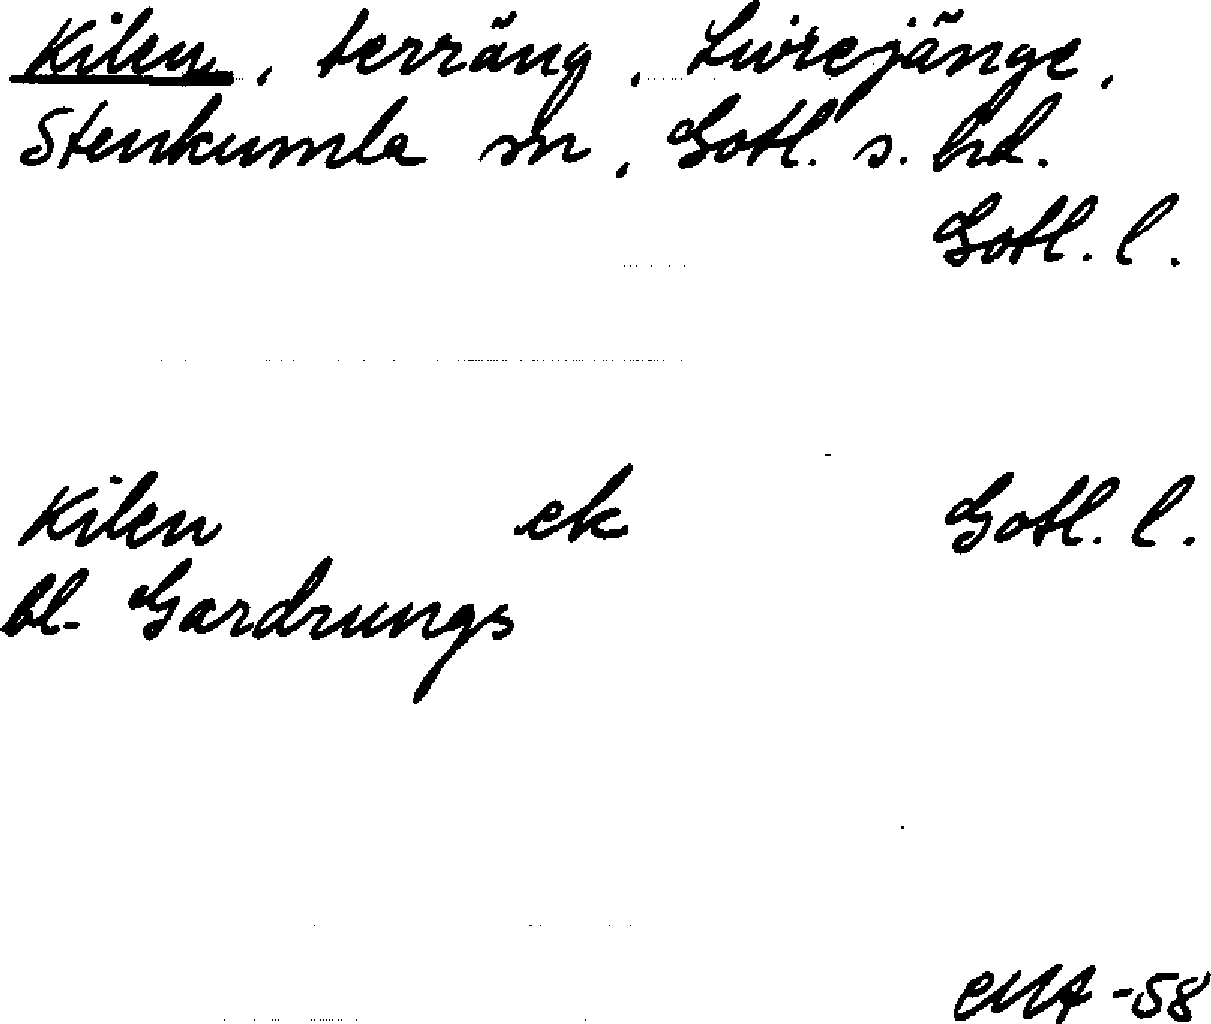 Kilen, terräng, Livrejänge,
Stenkumla sn, Gotl. s. hd.
Gotl. l.
Kilen ek Gotl. l.
bl. Gardrungs
EMA -58